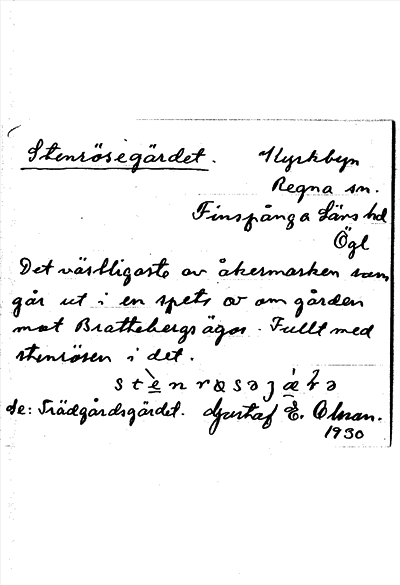 Stenrösegärdet. Kyrkbyn
Regna sn.
Finspånga Läns hd
Ögl
Det västligaste av åkermarken som
går ut i en spets av om gården
mot Brattebergs ägor. Fullt med
stenrösen i det.
Se: Trädgårdsgärdet. Gustaf E. Olsson.
1930